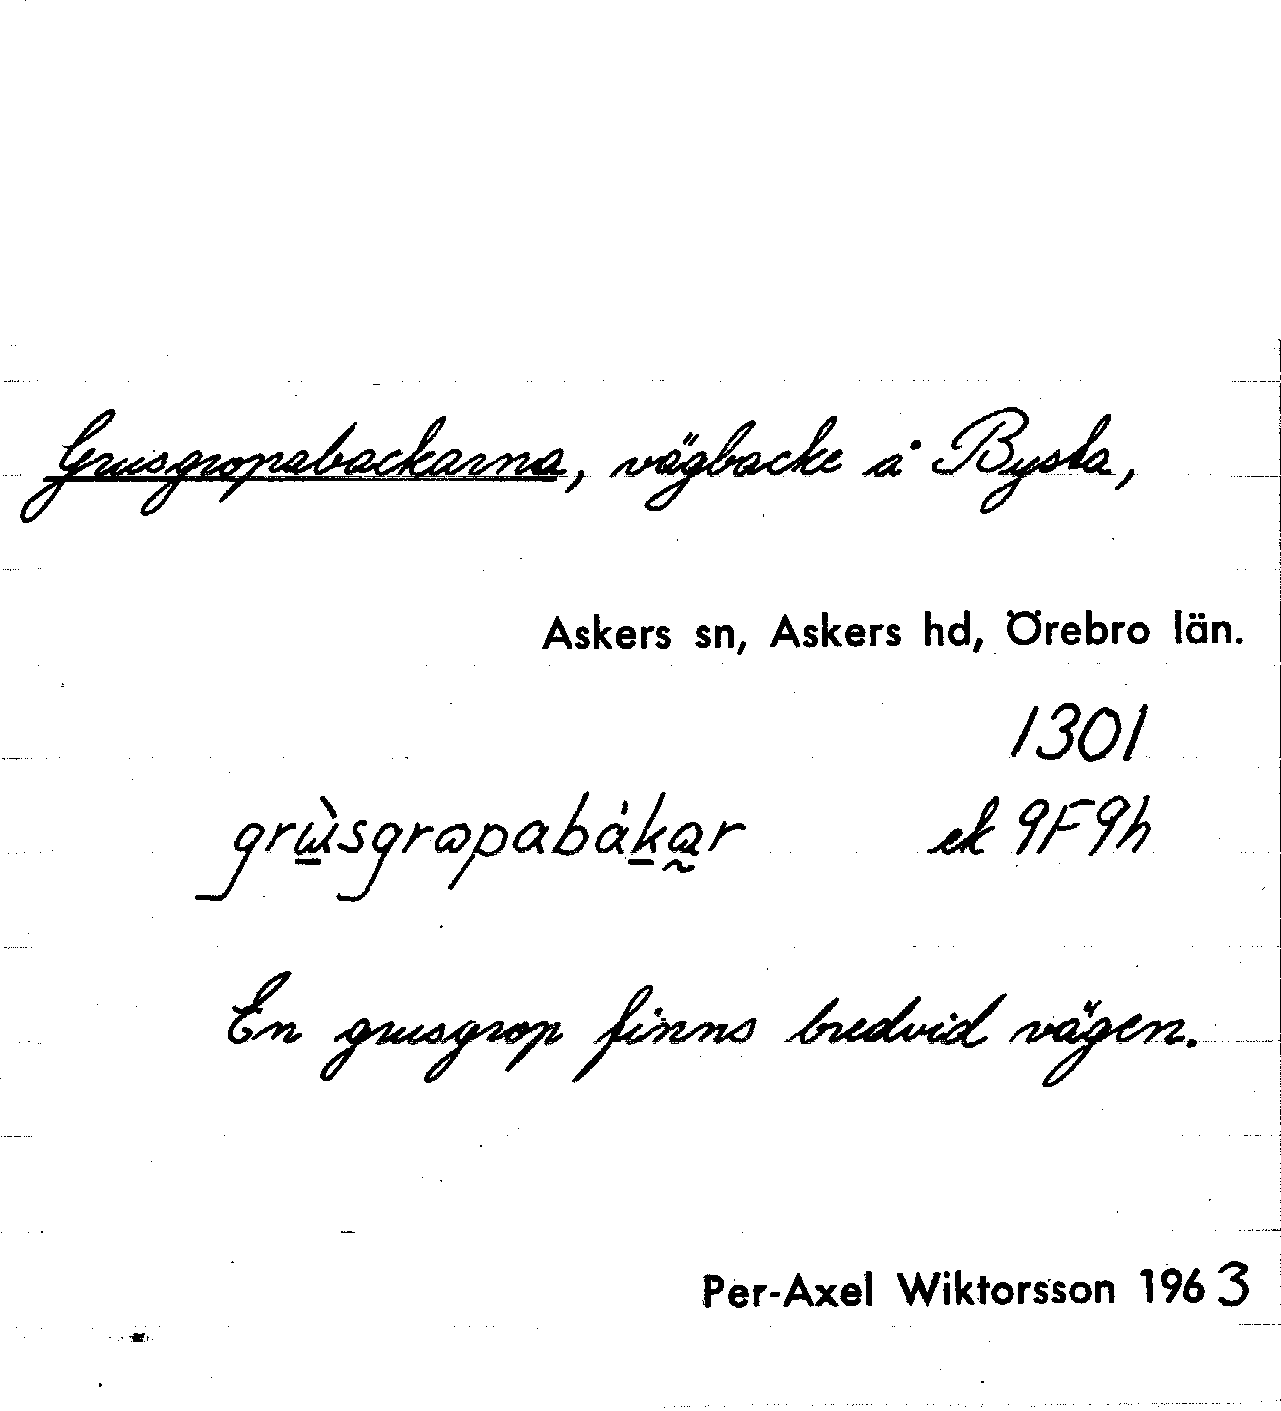 Grusgropabackarna, vägbacke å Bysta,
Askers sn, Askers hd, Örebro län.
1301
grɯ̀sgrɷpabàkar ek 9F9h
En grusgrop finns bredvid vägen.
Per-Axel Wiktorsson 1963